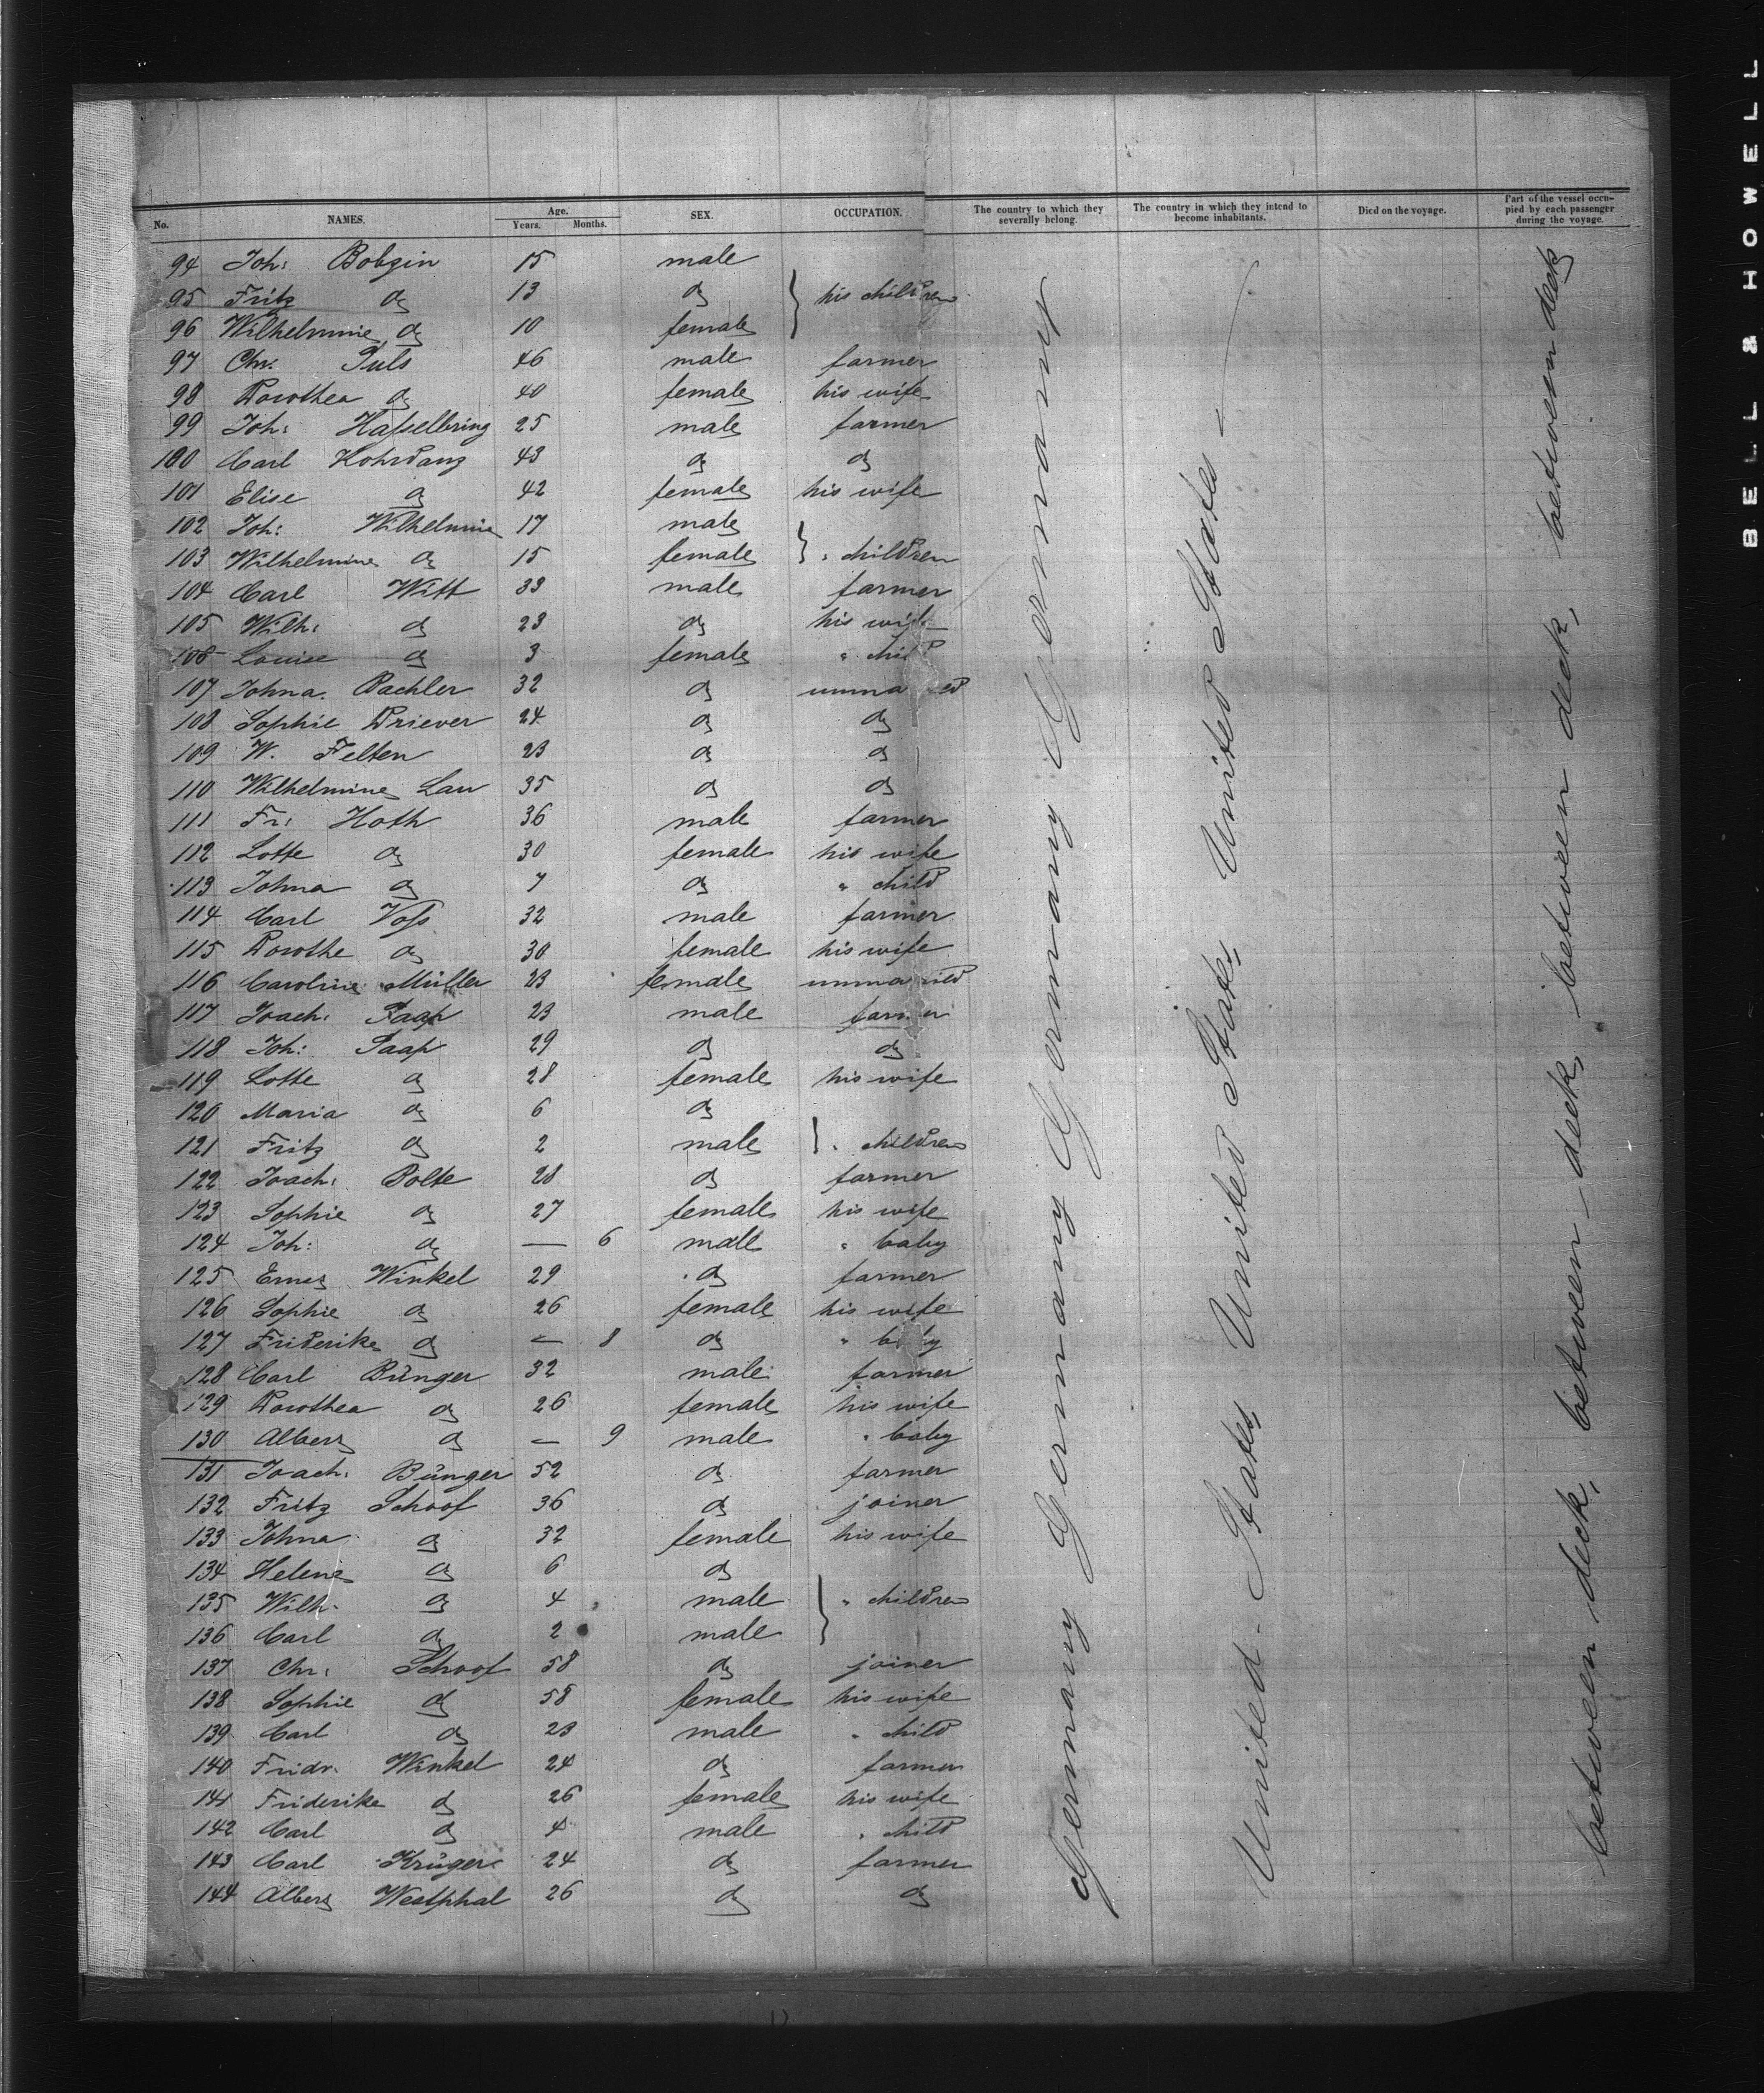 No. NAMES. Age. Years. Months. SEX. OCCUPATION. The country to which they severally belong. The country in which they intend to become inhabitants. Died on the voyage. Part of the vessel occupied by each passenger during the voyage.
94 Joh: Bobzin 15 male
95 Fritz do 13 do } his children
96 Wilhelmine do 10 female
97 Chr. Puls 46 male farmer
98 Dorothea do 40 female his wife
99 Joh: Hasselbring 25 male farmer
100 Carl Hohrdanz 43 do do
101 Elise do 42 female his wife
102 Joh: Wilhelmine 17 male
103 Wilhelmine do 15 female } " children
104 Carl Witt 33 male farmer
105 Wilh: do 23 do his wife
106 Louise do 3 female " child
107 Johna. Pachler 32 do unmarried
108 Sophie Driever 24 do do
109 W. Felten 23 do do
110 Wilhelmine Lau 35 do do
111 Fr: Hoth 36 male farmer
112 Lotte do 30 female his wife
113 Johna do 7 do " child
114 Carl Voss 32 male farmer
115 Dorothe do 30 female his wife
116 Caroline Müller 23 female unmarried
117 Joach: Paap 23 male farmer
118 Joh: Saap 29 do do
119 Lotte do 28 female his wife
120 Maria do 6 do
121 Fritz do 2 male } " children
122 Joach: Bolte 28 do farmer
123 Sophie do 27 female his wife
124 Joh: do — 6 male " baby
125 Ernes Winkel 29 do farmer
126 Sophie do 26 female his wife
127 Friderike do — 8 do " baby
128 Carl Bünger 32 male farmer
129 Dorothea do 26 female his wife
130 Albers do — 9 male " baby
131 Joach: Bünger 52 do farmer
132 Fritz Schoof 36 do joiner
133 Johna do 32 female his wife
134 Helene do 6 do
135 Wilh. do 4 male } " children
136 Carl do 2 male
137 Chr: Schoof 58 do joiner
138 Sophie do 58 female his wife
139 Carl do 23 male " child
140 Fridr. Winkel 24 do farmer
141 Friderike do 26 female his wife
142 Carl do 4 male " child
143 Carl Krüger 24 do farmer
144 Albers Westphal 26 do do
Germany Germany Germany Germany
United States, United States, United States —
between deck, between deck, between deck, between deck
BELL & HOWELL